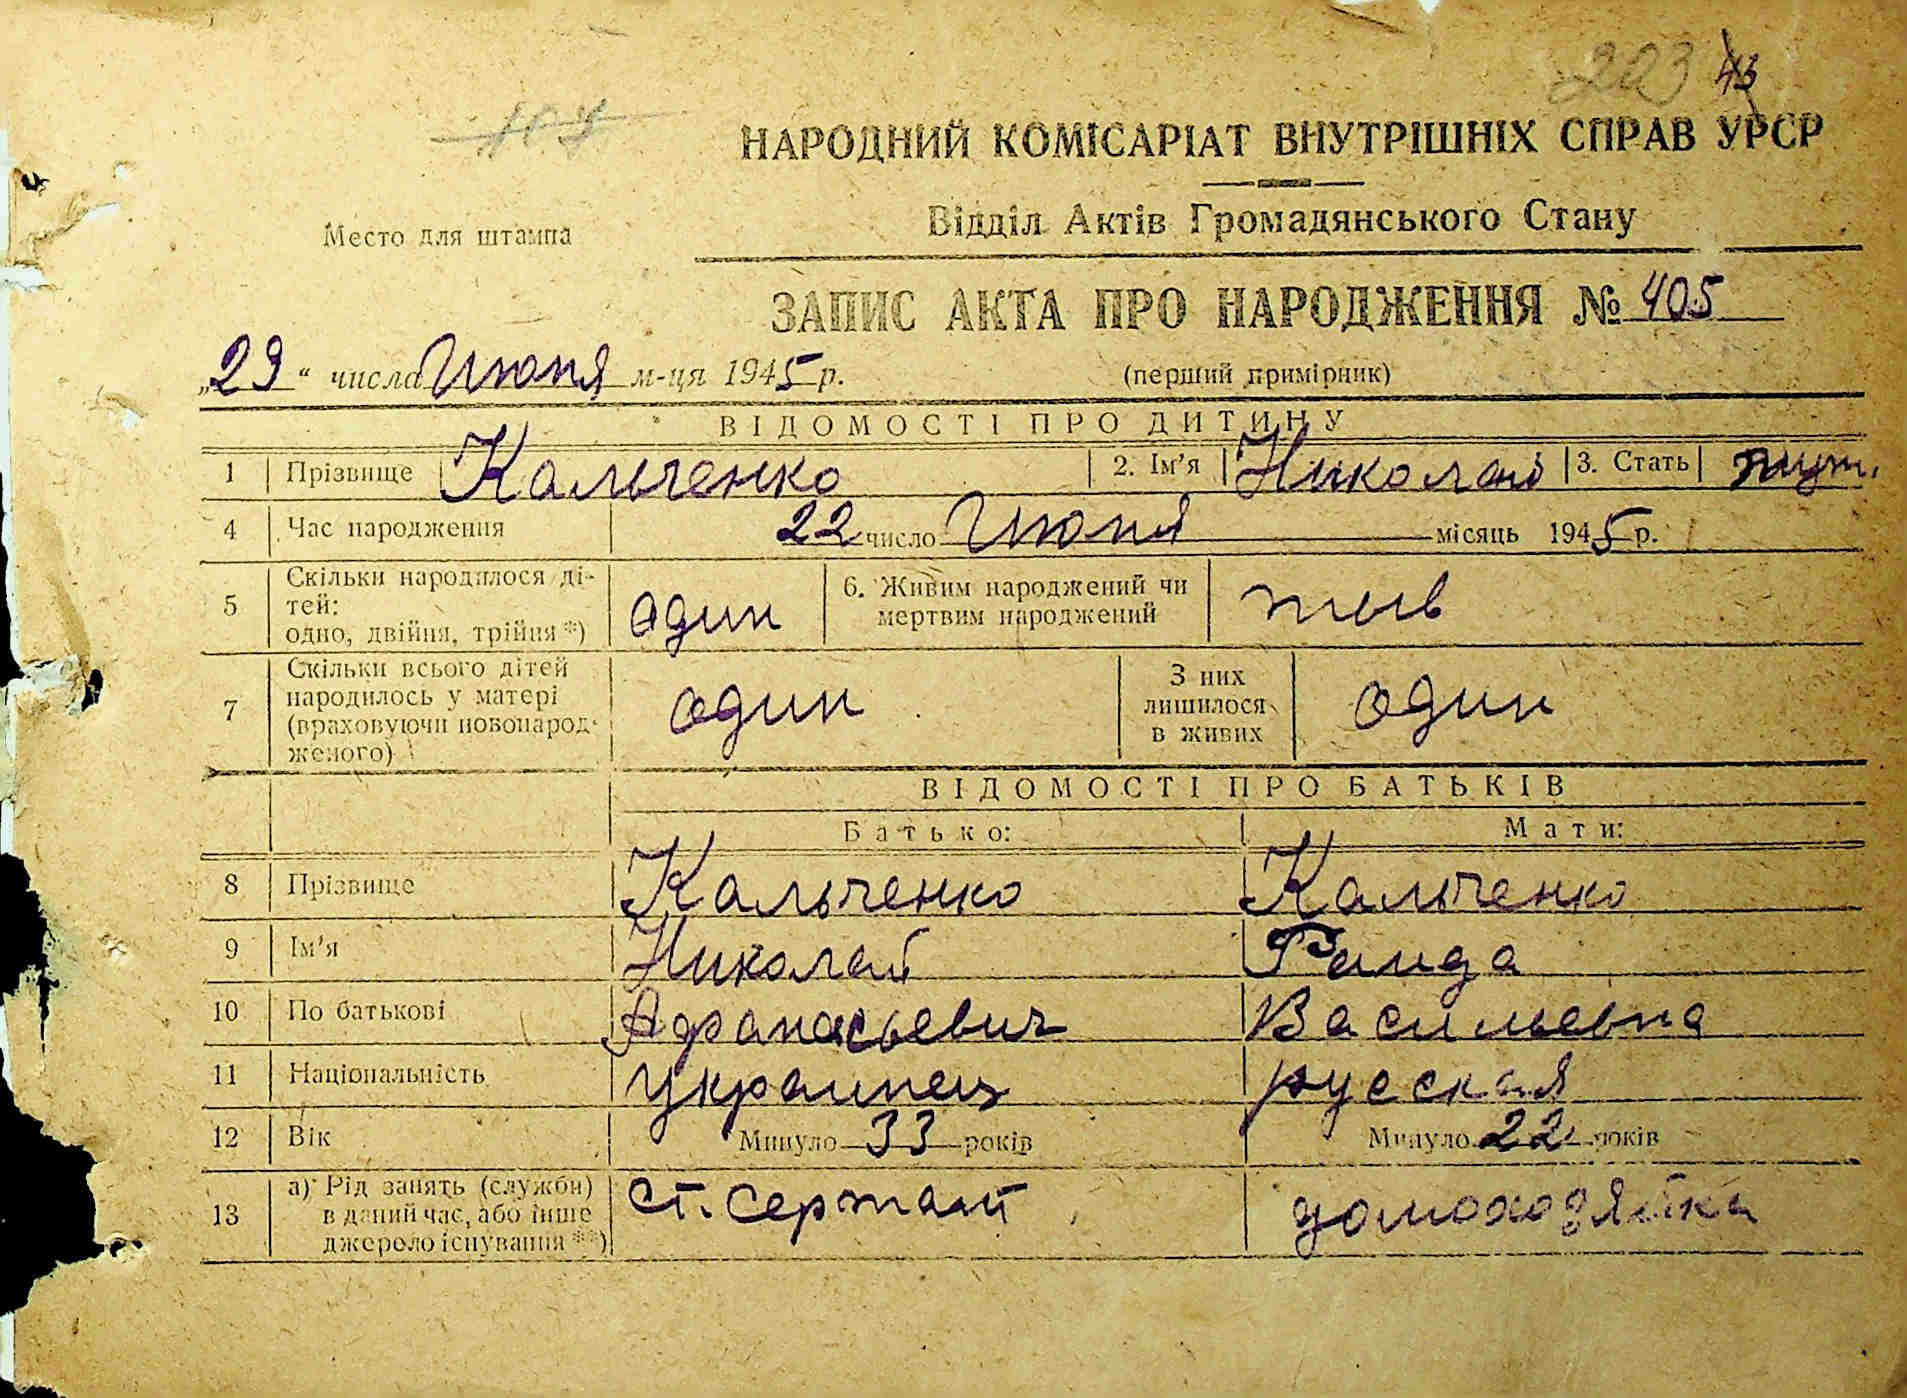 223 43
107
НАРОДНИЙ КОМІСАРІАТ ВНУТРІШНІХ СПРАВ УРСР
Место для штампа
Відділ Актів Громадянського Стану
ЗАПИС АКТА ПРО НАРОДЖЕННЯ № 405
„29“ числа Июня м-ця 1945 р. (перший примірник)
ВІДОМОСТІ ПРО ДИТИНУ
1 Прізвище Кальченко 2. Ім'я Николай 3. Стать муж.
4 Час народження 22 число Июня місяць 1945 р.
5 Скільки народилося ді-
тей:
одно, двійня, трійня *) один 6. Живим народжений чи
мертвим народжений жив
7 Скільки всього дітей
народилось у матері
(враховуючи новонарод-
женого) один З них
лишилося
в живих один
ВІДОМОСТІ ПРО БАТЬКІВ
Батько: Мати:
8 Прізвище Кальченко Кальченко
9 Ім'я Николай Раида
10 По батькові Афанасьевич Васильевна
11 Національність украинец русская
12 Вік Минуло 33 років Минуло 22 років
13 а) Рід занять (служби)
в даний час, або інше
джерело існування **) ст. сержант домохозяйка